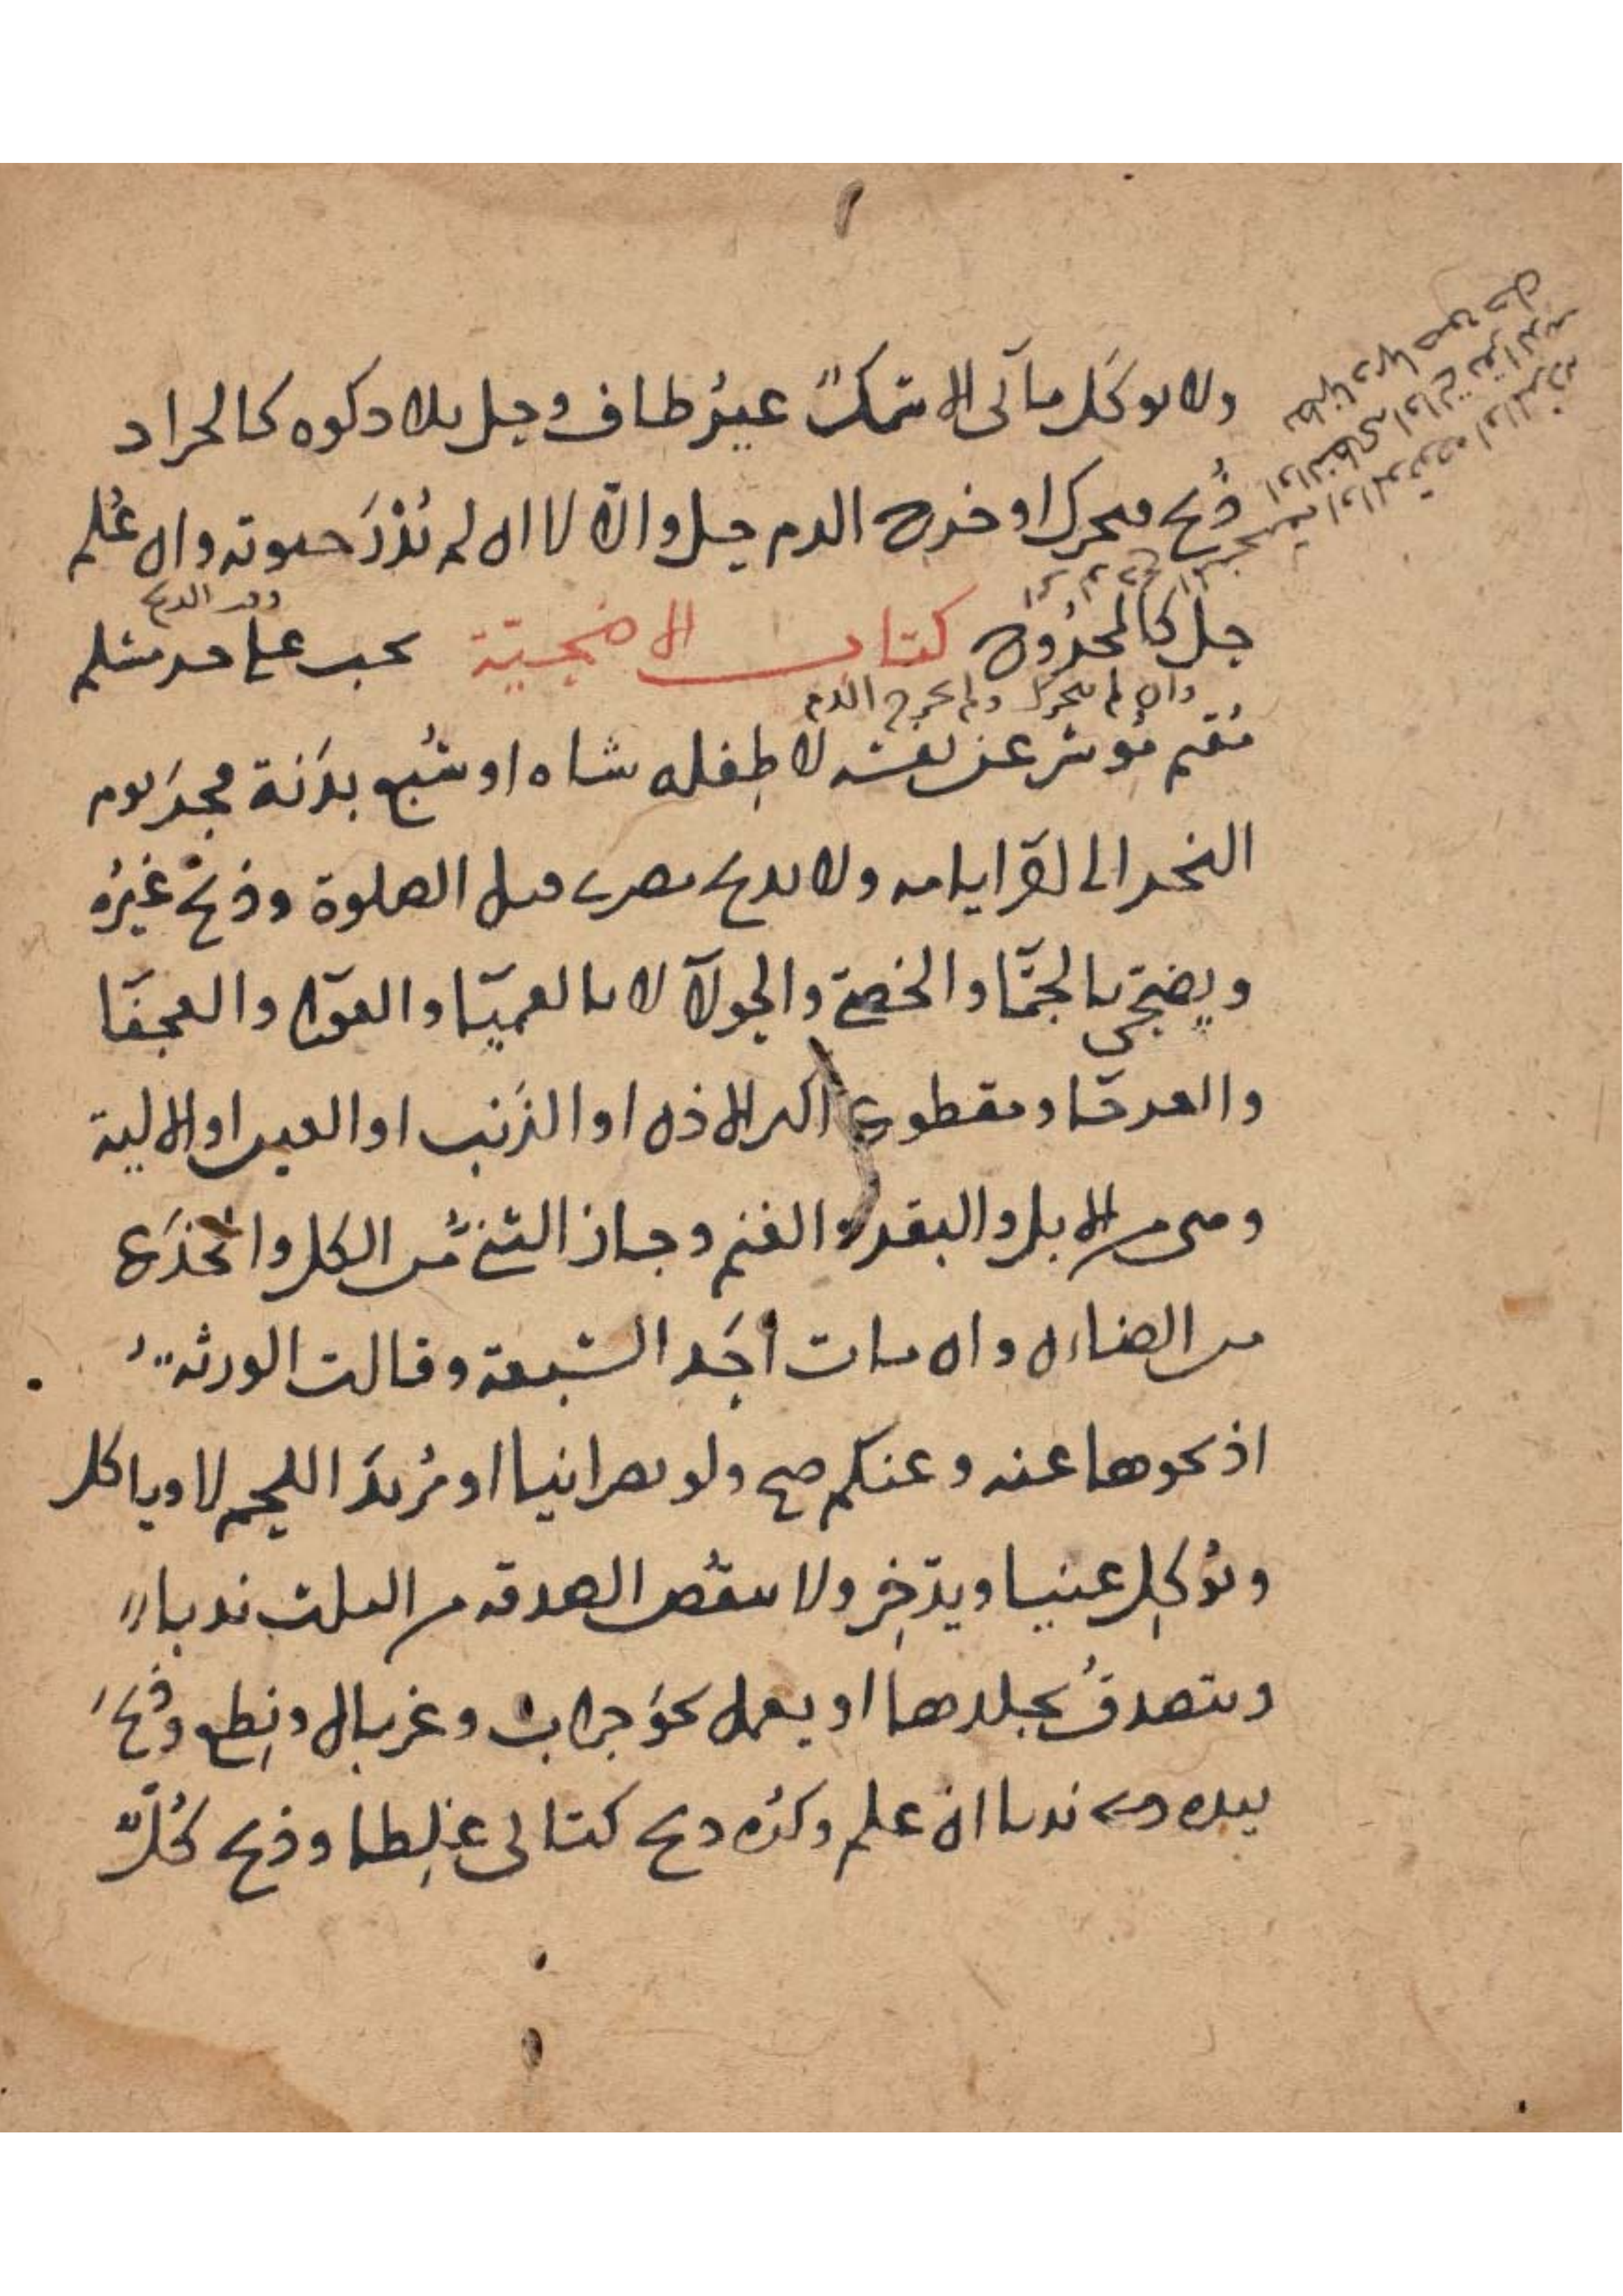 ولا يوكل مائي الا سمكٌ غير طاف وحل بلا ذكوة كالجراد
ذُبح فتحرك او خرج الدم حل والّا لا ان لم تُدْرَ حيوته وان عُلم
وقت الذبح
حل كالمخدوج كتاب الاضحيّة تجب على حر مسلم
وان لم يتحرك ولم يخرج الدم
مُقيم مُوسر عن نفسه لا طِفله شاة او سُبع بدَنة فجرَ يوم
النحر الى اٰخر ايامه ولا يذبح مصري قبل الصلوة وذبح غيرُه
ويضحّي بالجمّا والخصيّ والثولآ لا بالعميّا والعورا والعجفا
والعرجا ومقطوع اكثر الاذن او الذَنب او العين او الالية
وهي من الابل والبقر والغنم وجاز الثني من الكل والجذَع
من الضان وان مات احَد السبعة وقالت الورثة
اذبحوها عنه وعنكم صح ولو نصرانيا او مُريدَ اللحم لا وياكل
ويُوكِل غنيا ويدّخِر ولا ينقُص الصدقة من الثلث ندبا
ويتصدقُ بجلدها او يعمل نحوَ جراب وغربال ونِطع وذُبحَ
بيده ندبا ان علم وكُره ذبح كتابي غلِطا وذبح كُلٌّ